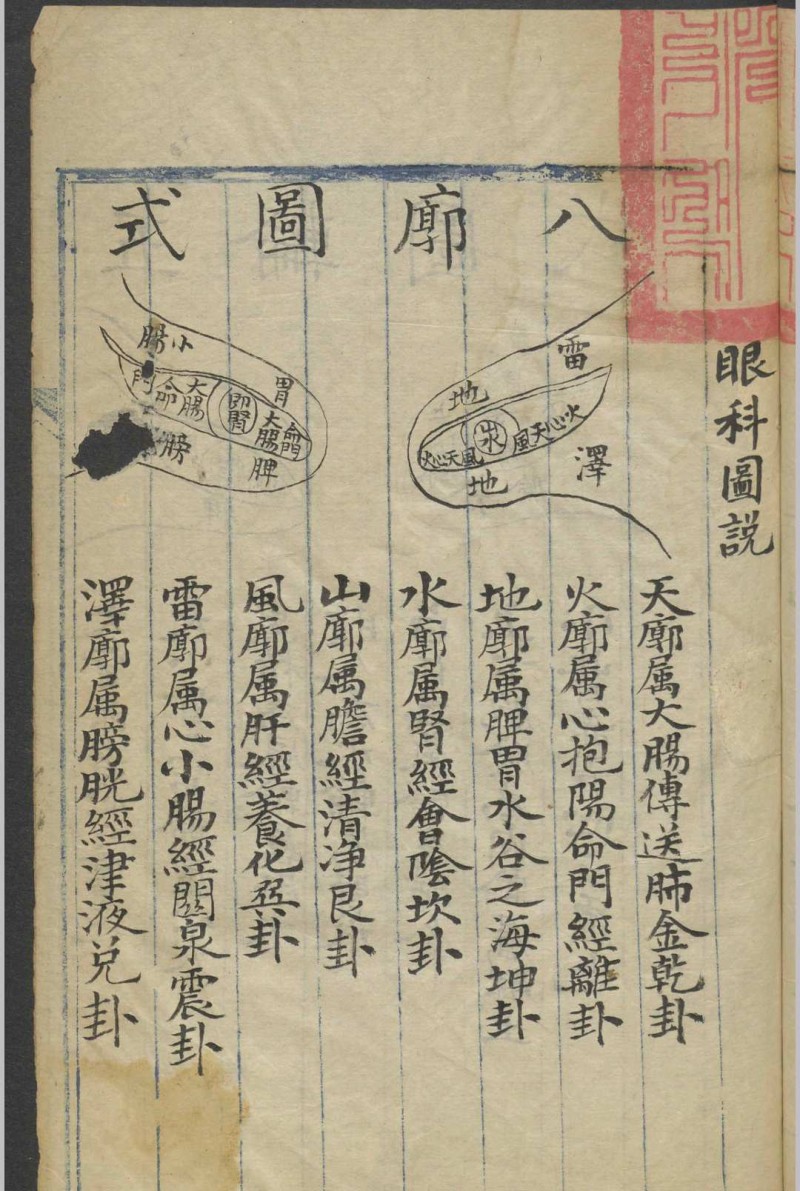 眼科圖説
八廓圖式
雷
地
火心天風
水
火心天風
地
澤
小腸
胃
命門
大腸
大腸
命門
膀
脾
天廓属大腸傳送肺金乾卦
火廓属心抱陽命門經離卦
地廓属脾胃水谷之海坤卦
水廓属腎經會陰坎卦
山廓属膽經清净艮卦
風廓属肝經養化巽卦
雷廓属心小腸經關泉震卦
澤廓属膀胱經津液兑卦